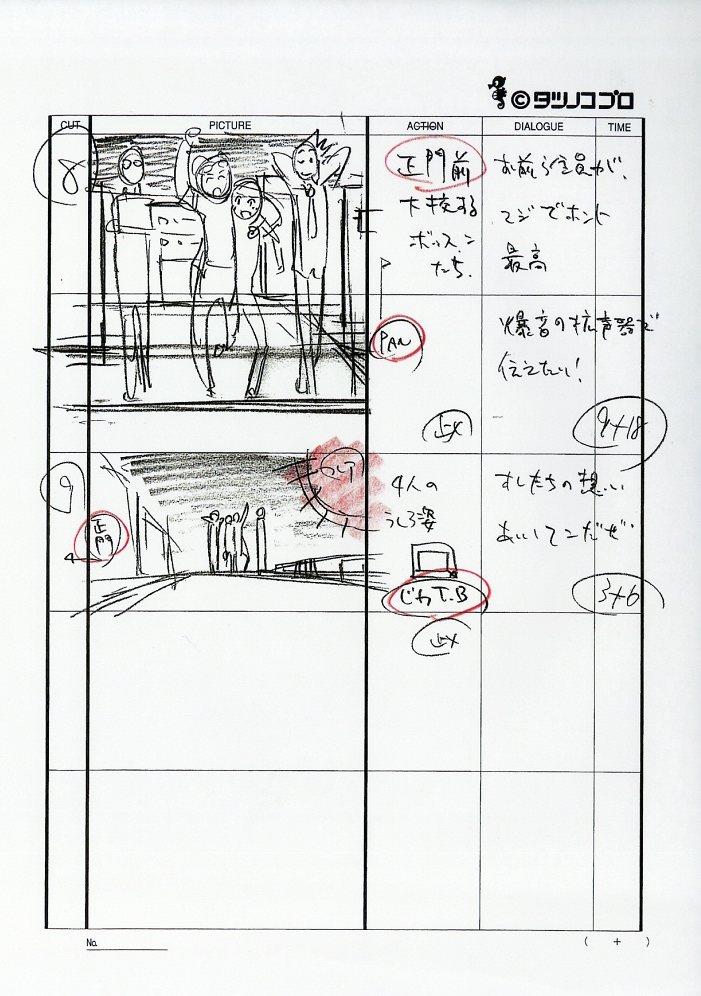 ©タツノコプロ
CUT PICTURE ACTION DIALOGUE TIME
8
正門前
ボッスン
たち.
お前ら全員が、
マジでホント
最高
PAN
爆音の拡声器で
伝えたい!
9+18
9
正門
4人の
うしろ姿
じわT.B
たちの想い
3+6
No.
( + )